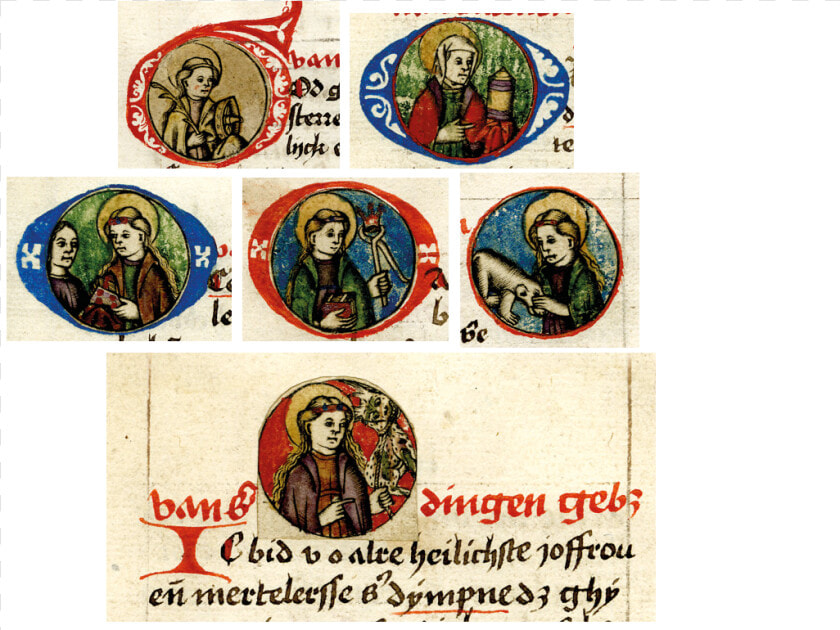 van
sterre
lijck e
d
te
le
b
be
van s dingen gebz
Ic bid v o alre heilichste joffrou
en̄ mertelersse s dympne dz ghy